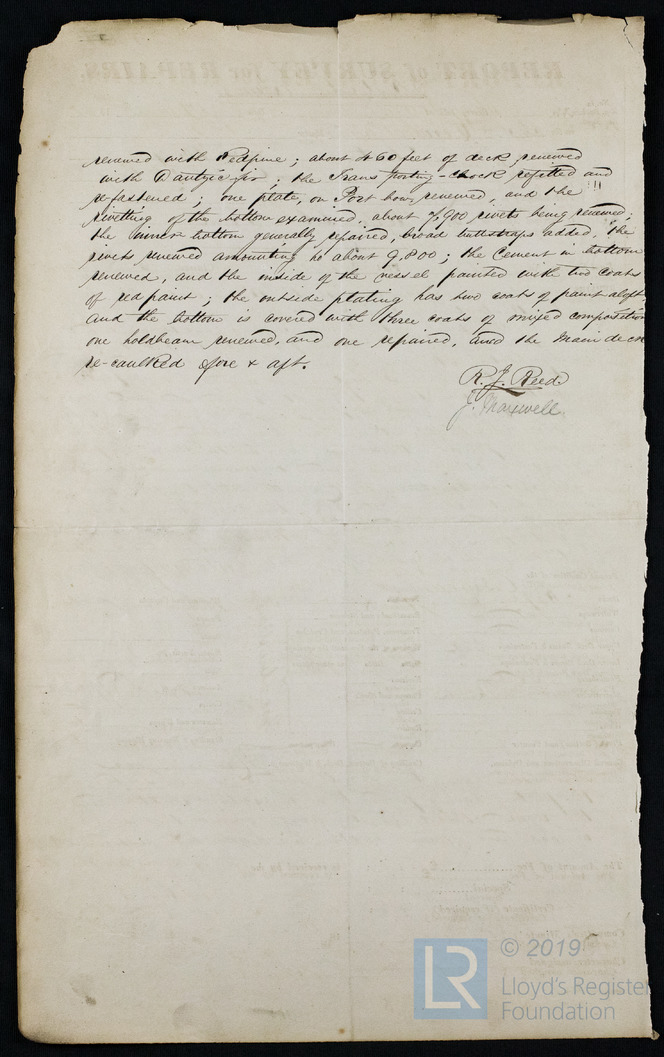 renewed with Redpine; about 460 feet of deck renewed
with Dantzic fir; the Transporting-chock refitted and
re-fastened; one plate, on Port bow, renewed, and the
rivetting of the bottom examined, about 7,900 rivets being renewed;
the inner bottom generally repaired, broad buttstraps added, the
rivets renewed amounting to about 9,800; the Cement in bottom
renewed, and the inside of the vessel painted with two coats
of red paint; the outside plating has two coats of paint aloft
and the bottom is covered with three coats of mixed composition
one holdbeam renewed, and one repaired, and the Main deck
re-caulked fore & aft.
R. J. Reed
J. Maxwell
LR
© 2019
Lloyd's Register
Foundation